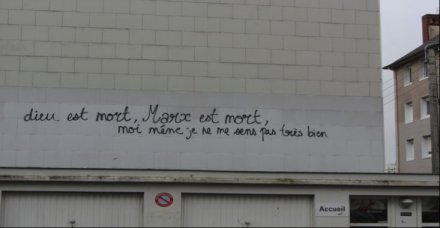 dieu est mort, Marx est mort,
moi même je ne me sens pas très bien
Accueil